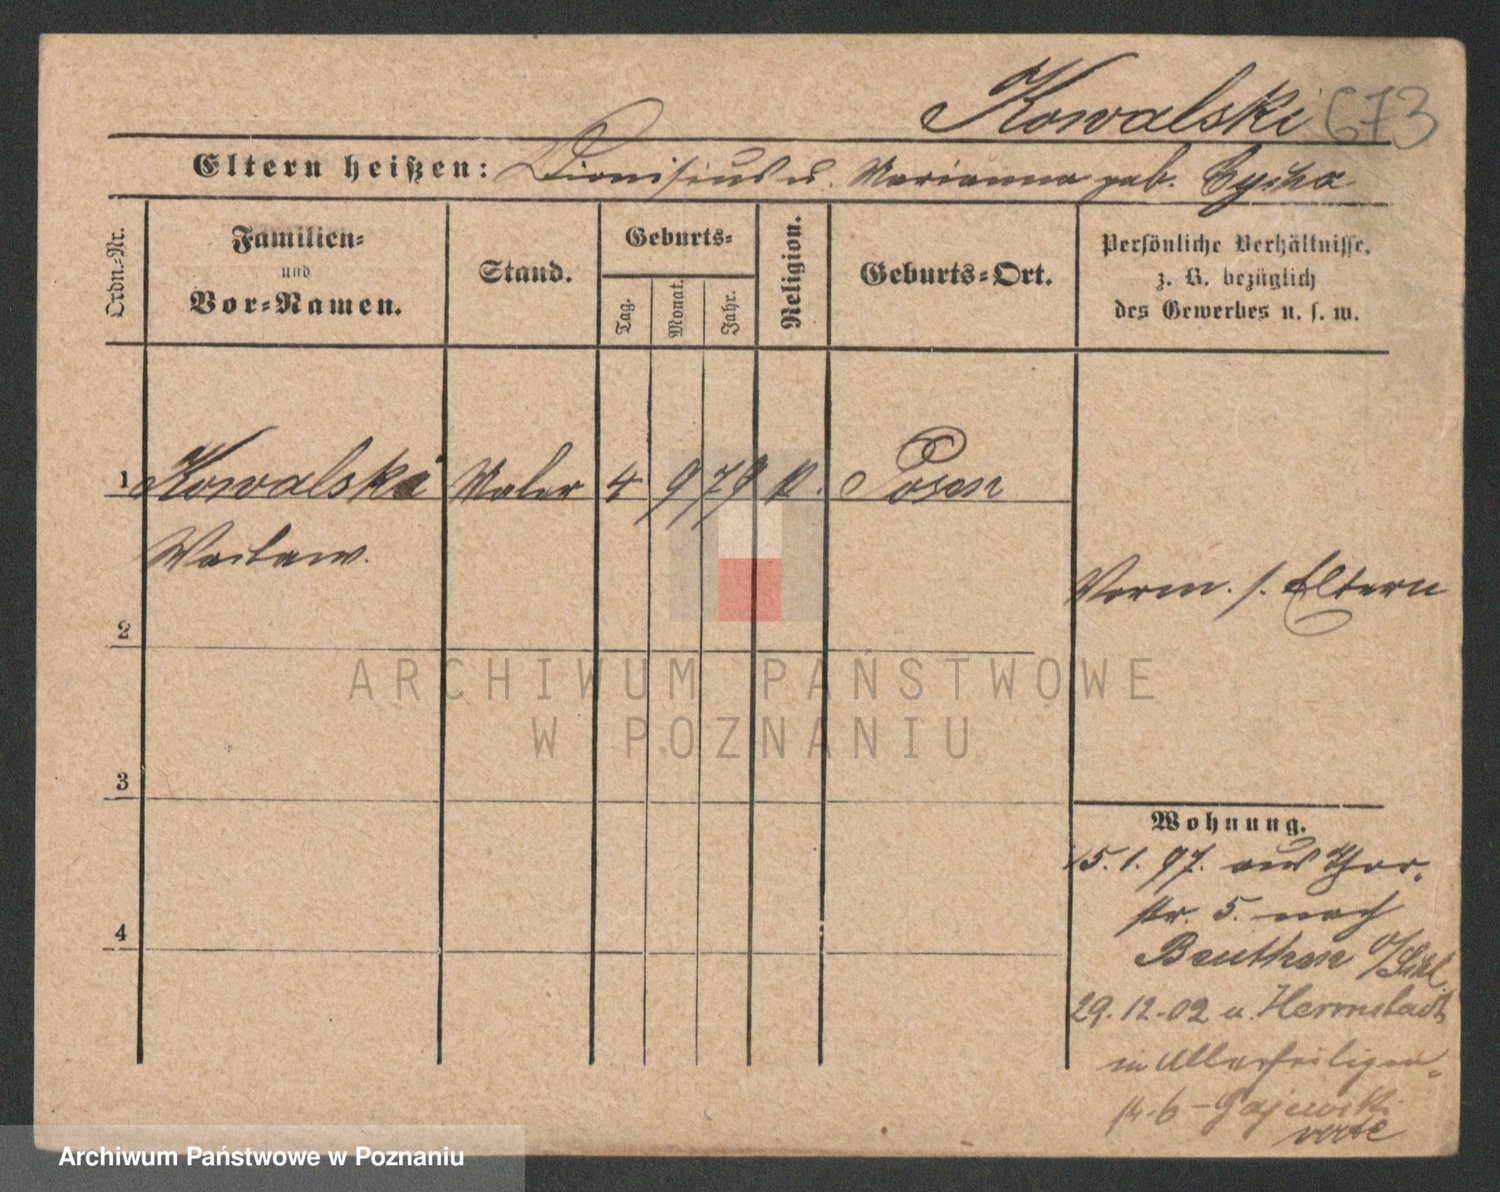 Kowalski 673
Eltern heißen: Dionisius u. Marianna geb.
Ordn.-Nr.
Familien-
und
Vor-Namen.
Stand.
Geburts-
Tag.
Monat.
Jahr.
Religion.
Geburts-Ort.
Persönliche Verhältnisse,
z. B. bezüglich
des Gewerbes u. s. w.
1 Kowalski Maler 4 9 79 k. Posen
Waclaw.
Vorm. s. Eltern
2
3
4
Wohnung.
15. 1. 97. aus Thor-
str. 5. nach
Beuthen O/Schl.
29. 12. 02 a. Herrnstadt
in Allerheiligen-
str. 6 - Gajewski
ARCHIWUM PAŃSTWOWE
W POZNANIU
Archiwum Państwowe w Poznaniu